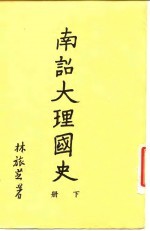 南詔大理國史
下冊
林旅芝著